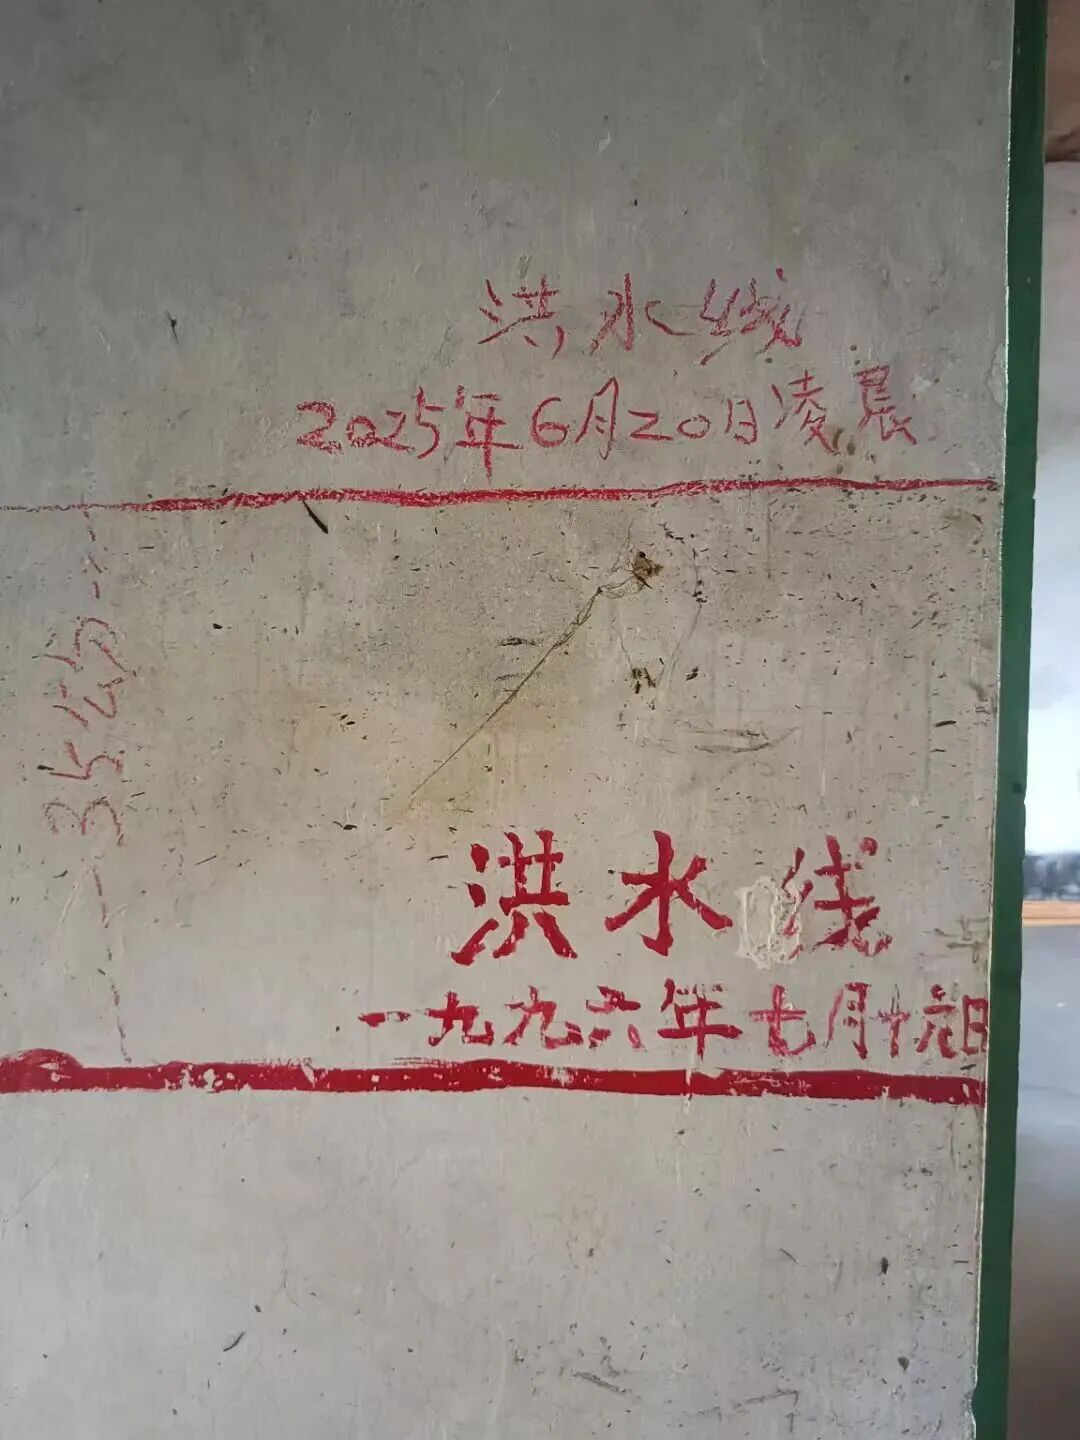 洪水线
2025年6月20日凌晨
35公分
洪水线
一九九六年七月十六日